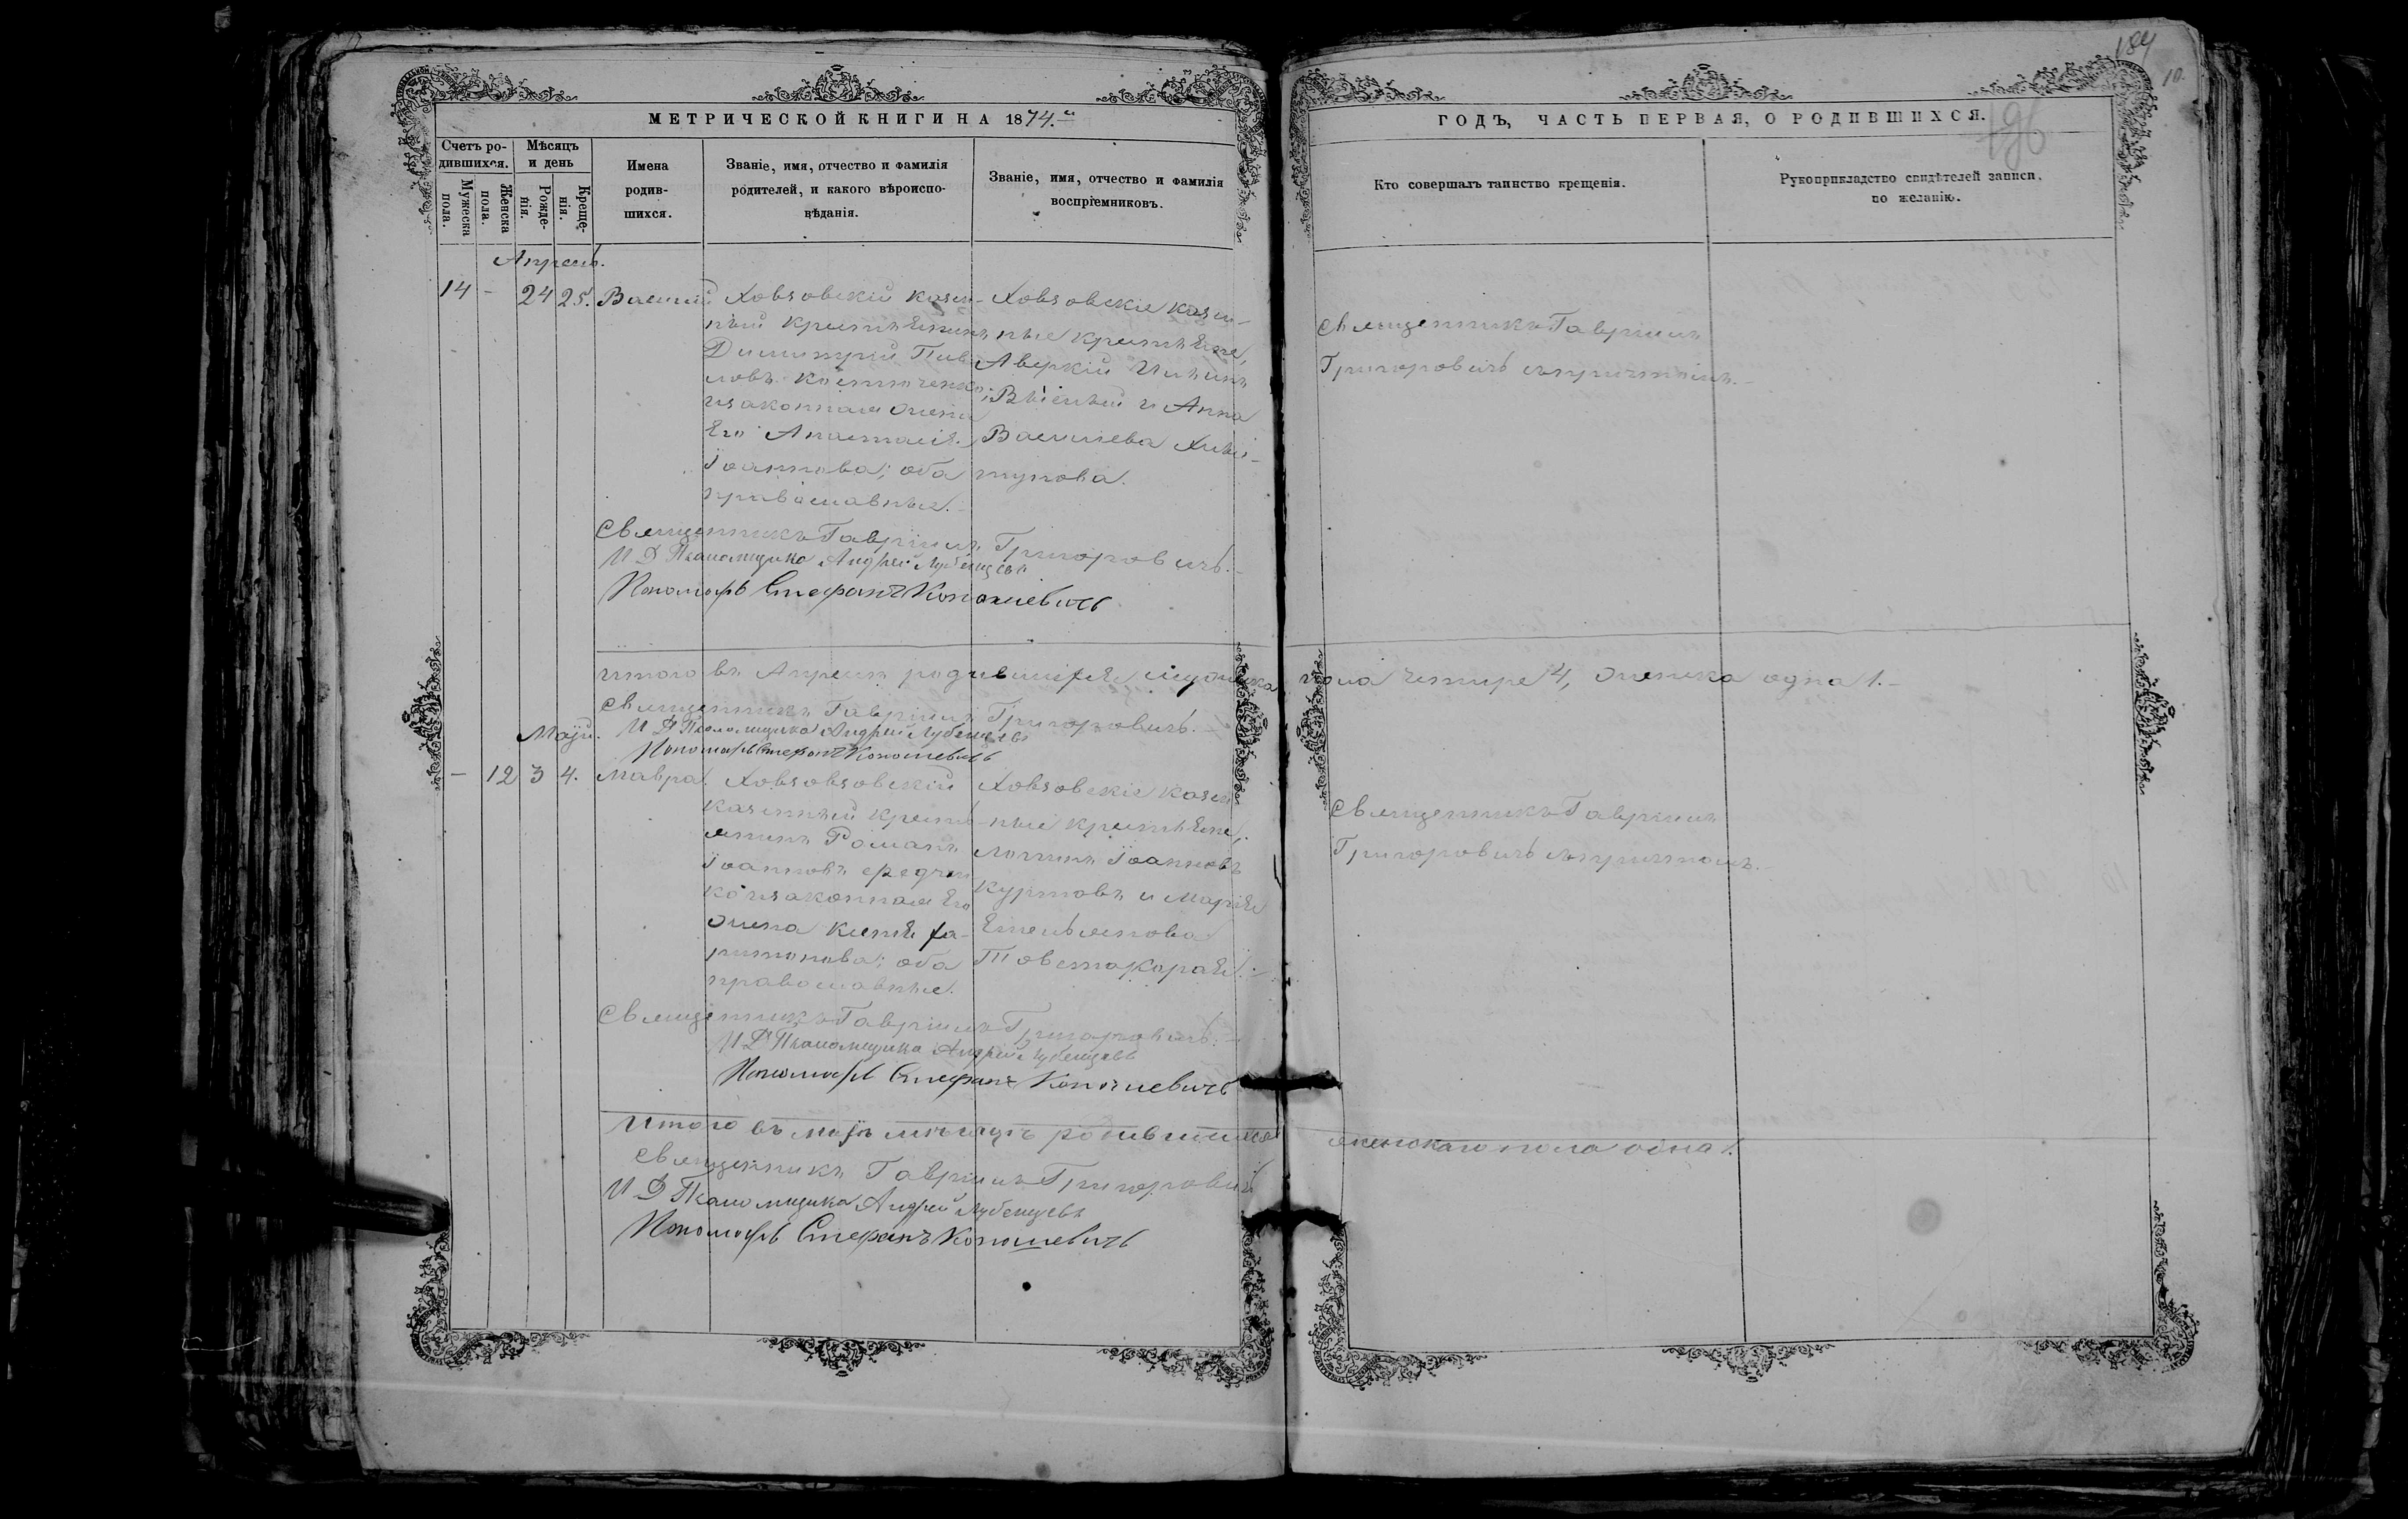 184
10.
196
МЕТРИЧЕСКОЙ КНИГИ НА 1874.й
ГОДЪ, ЧАСТЬ ПЕРВАЯ, О РОДИВШИХСЯ.
Счетъ ро-
дившихся.
Мужеска
пола.
Женска
пола.
Мѣсяцъ
и день
Рожде-
нія.
Креще-
нія.
Имена
родив-
шихся.
Званіе, имя, отчество и фамилія
родителей, и какого вѣроиспо-
вѣданія.
Званіе, имя, отчество и фамилія
воспріемниковъ.
Кто совершалъ таинство крещенія.
Рукоприкладство свидѣтелей записи,
по желанію.
Апрель.
14 - 24 25. Василій
Ховзовскій казен-
ный крестьянинъ
Димитрій
и законная жена
его Анастасія
Іоаннова; оба
православныя.
Ховзовскіе казен-
ные крестьяне,
Аверкій
и Анна
Васильева
Священникъ Гавріилъ
Григоровичъ съ причтомъ.
Священникъ Гавріилъ Григоровичъ.
И Д Псаломщика Андрей Лубенцовъ
Пономарь Стефанъ Кононевичъ
Итого въ Апреле родившихся мужеска пола четыре 4, женска одна 1.
Священникъ Гавріилъ Григоровичъ.
И Д Псаломщика Андрей Лубенцовъ
Пономарь Стефанъ Кононевичъ
Май.
- 12 3 4. Мавра
Ховзовзовскій
казенный кресть-
янинъ Романъ
Іоанновъ
и законная его
жена Ксенія Ха-
ритонова; оба
православные.
Ховзовскіе казен
ные крестьяне,
Логинъ Іоанновъ
Куртовъ и Марія
Емельянова
Священникъ Гавріилъ
Григоровичъ съ причтомъ.
Священникъ Гавріилъ Григоровичъ.
И Д Псаломщика Андрей Лубенцовъ
Пономарь Стефанъ Кононевичъ
Итого въ маѣ мѣсяцѣ родившихся женскаго пола одна 1.
Священникъ Гавріилъ Григоровичъ
И Д Псаломщика Андрей Лубенцовъ
Пономарь Стефанъ Кононевичъ